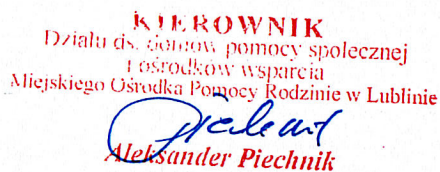 KIEROWNIK
Działu ds. domów pomocy społecznej
i ośrodków wsparcia
Miejskiego Ośrodka Pomocy Rodzinie w Lublinie
Piechnik
Aleksander Piechnik